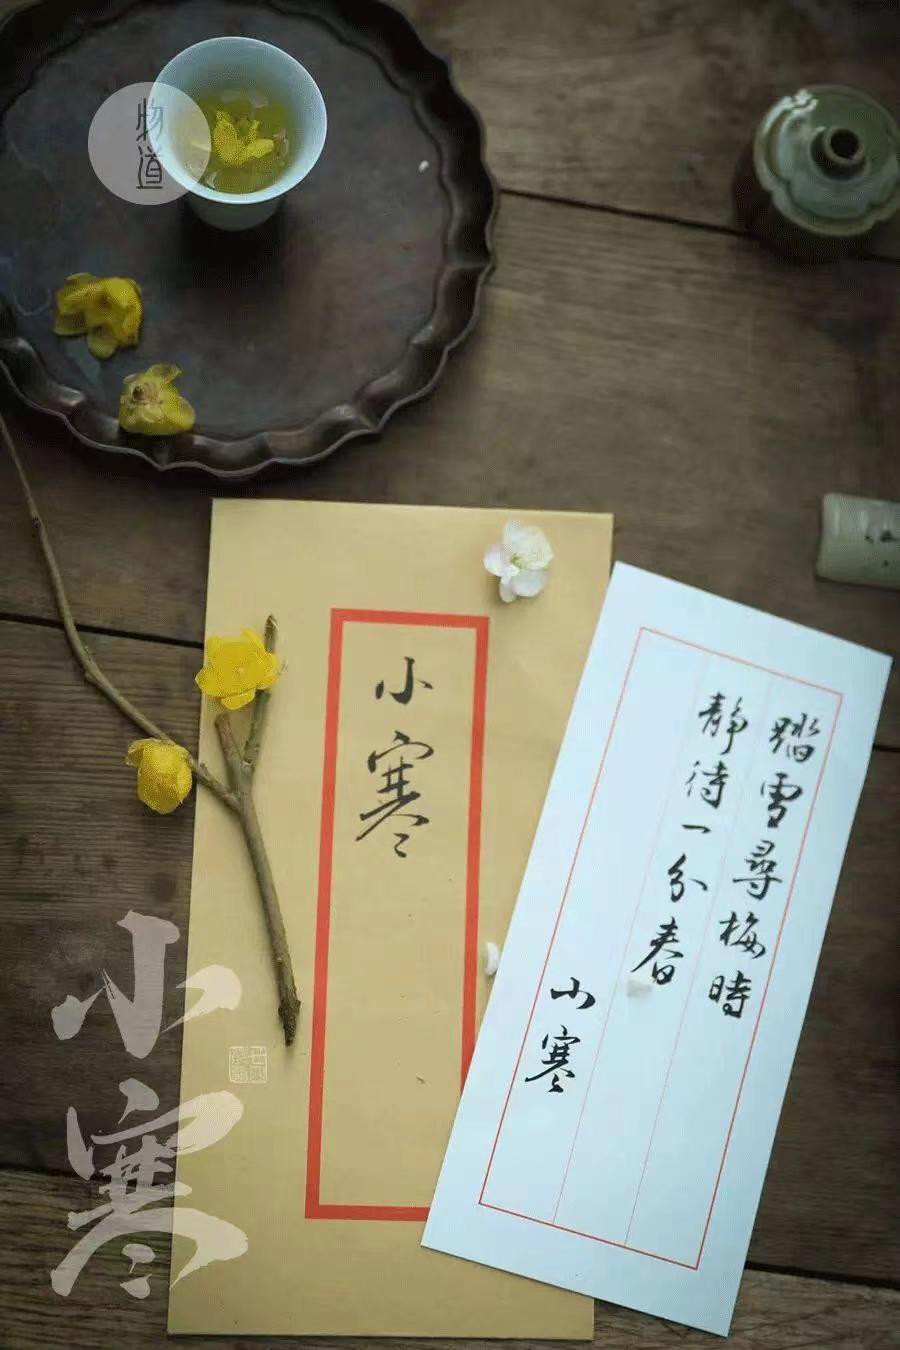 物道
小寒
踏雪尋梅時
静待一分春
小寒
小寒